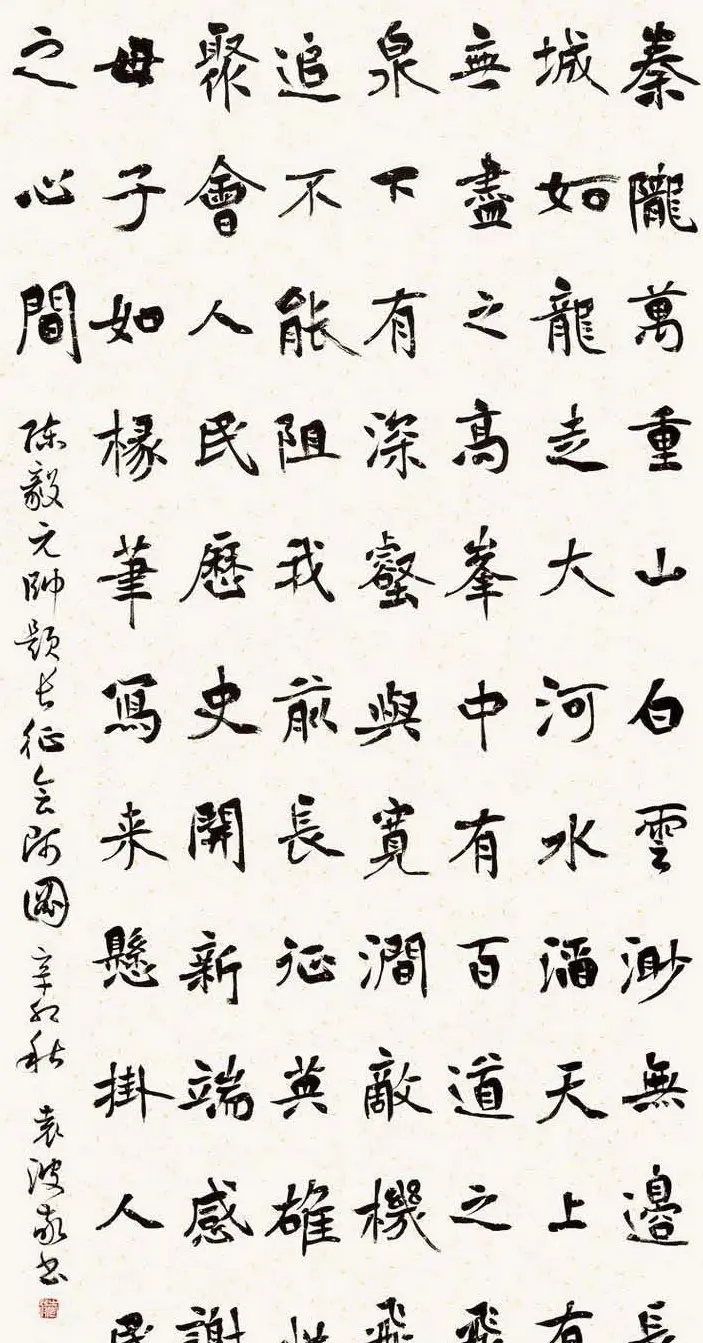 秦隴萬重山白雲渺無邊長
城如龍走大河水天上有
無盡之高峯中有百道之飛
泉下有深壑與寬澗敵機飛
追不能阻我前長征英雄
聚會人民歷史開新端感謝
毋子如椽筆寫来懸掛人民
之心間
陈毅元帥题长征会师圖 辛卯秋 袁波敬书